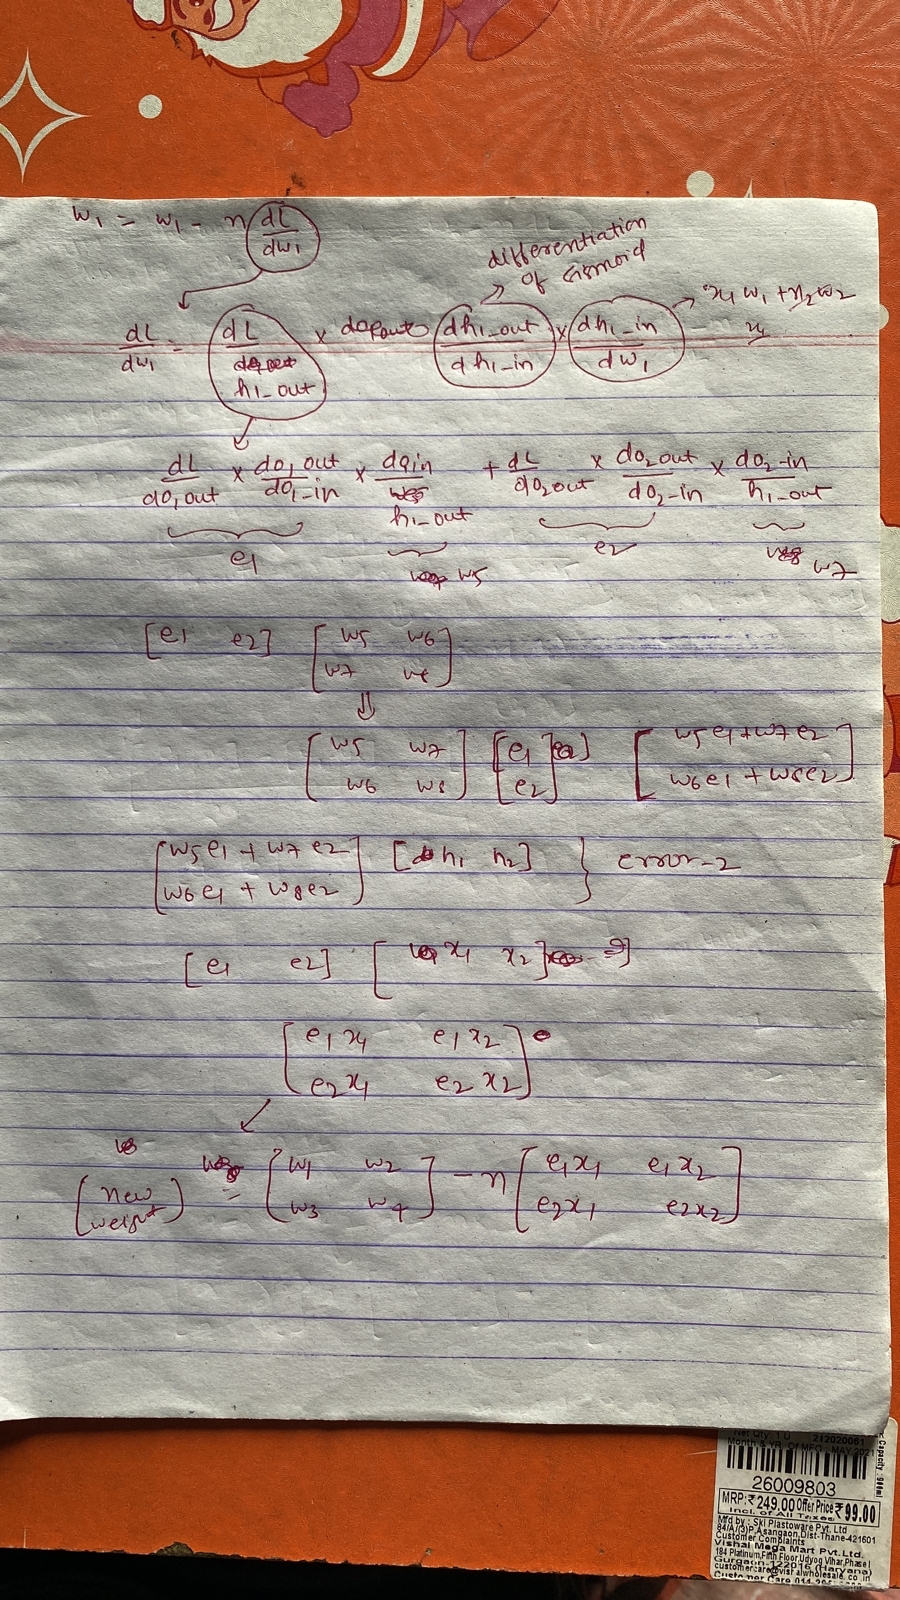 w1 = w1 - n dL/dw1
differentiation of sismoid
dL/dw1 = dL/h1_out × dh1_out/dh1_in × dh1_in/dw1 → x1w1 + x2w2
x1
dL/do1out × do1out/do1_in × do1in/h1_out + dL/do2out × do2out/do2_in × do2_in/h1_out
e1 w5 e2 w7
[e1 e2] [w5 w6
w7 w8]
⇓
[w5 w7 [e1 [w5e1 + w7e2
w6 w8] e2] w6e1 + w8e2]
[w5e1 + w7e2 [h1 h2] } error-2
w6e1 + w8e2]
[e1 e2] [x1 x2]
[e1x1 e1x2
e2x1 e2x2]
[new weight] = [w1 w2 - n [e1x1 e1x2
w3 w4] e2x1 e2x2]
Net Qty. 1 U 212020061
Month & YR. Of MFG : MAY 2021
Capacity : 900ml
26009803
MRP:₹249.00 Offer Price ₹99.00
Incl. of All Taxes
Mfd by : Ski Plastoware Pvt. Ltd
84/A/(3)P,Asangaon,Dist-Thane-421601
Customer Complaints
Vishal Mega Mart Pvt.Ltd.
184 Platinum,Fifth Floor,Udyog Vihar,Phase I
Gurgaon-122016 (Haryana)
customercare@vishalwholesale.co.in
Customer Care